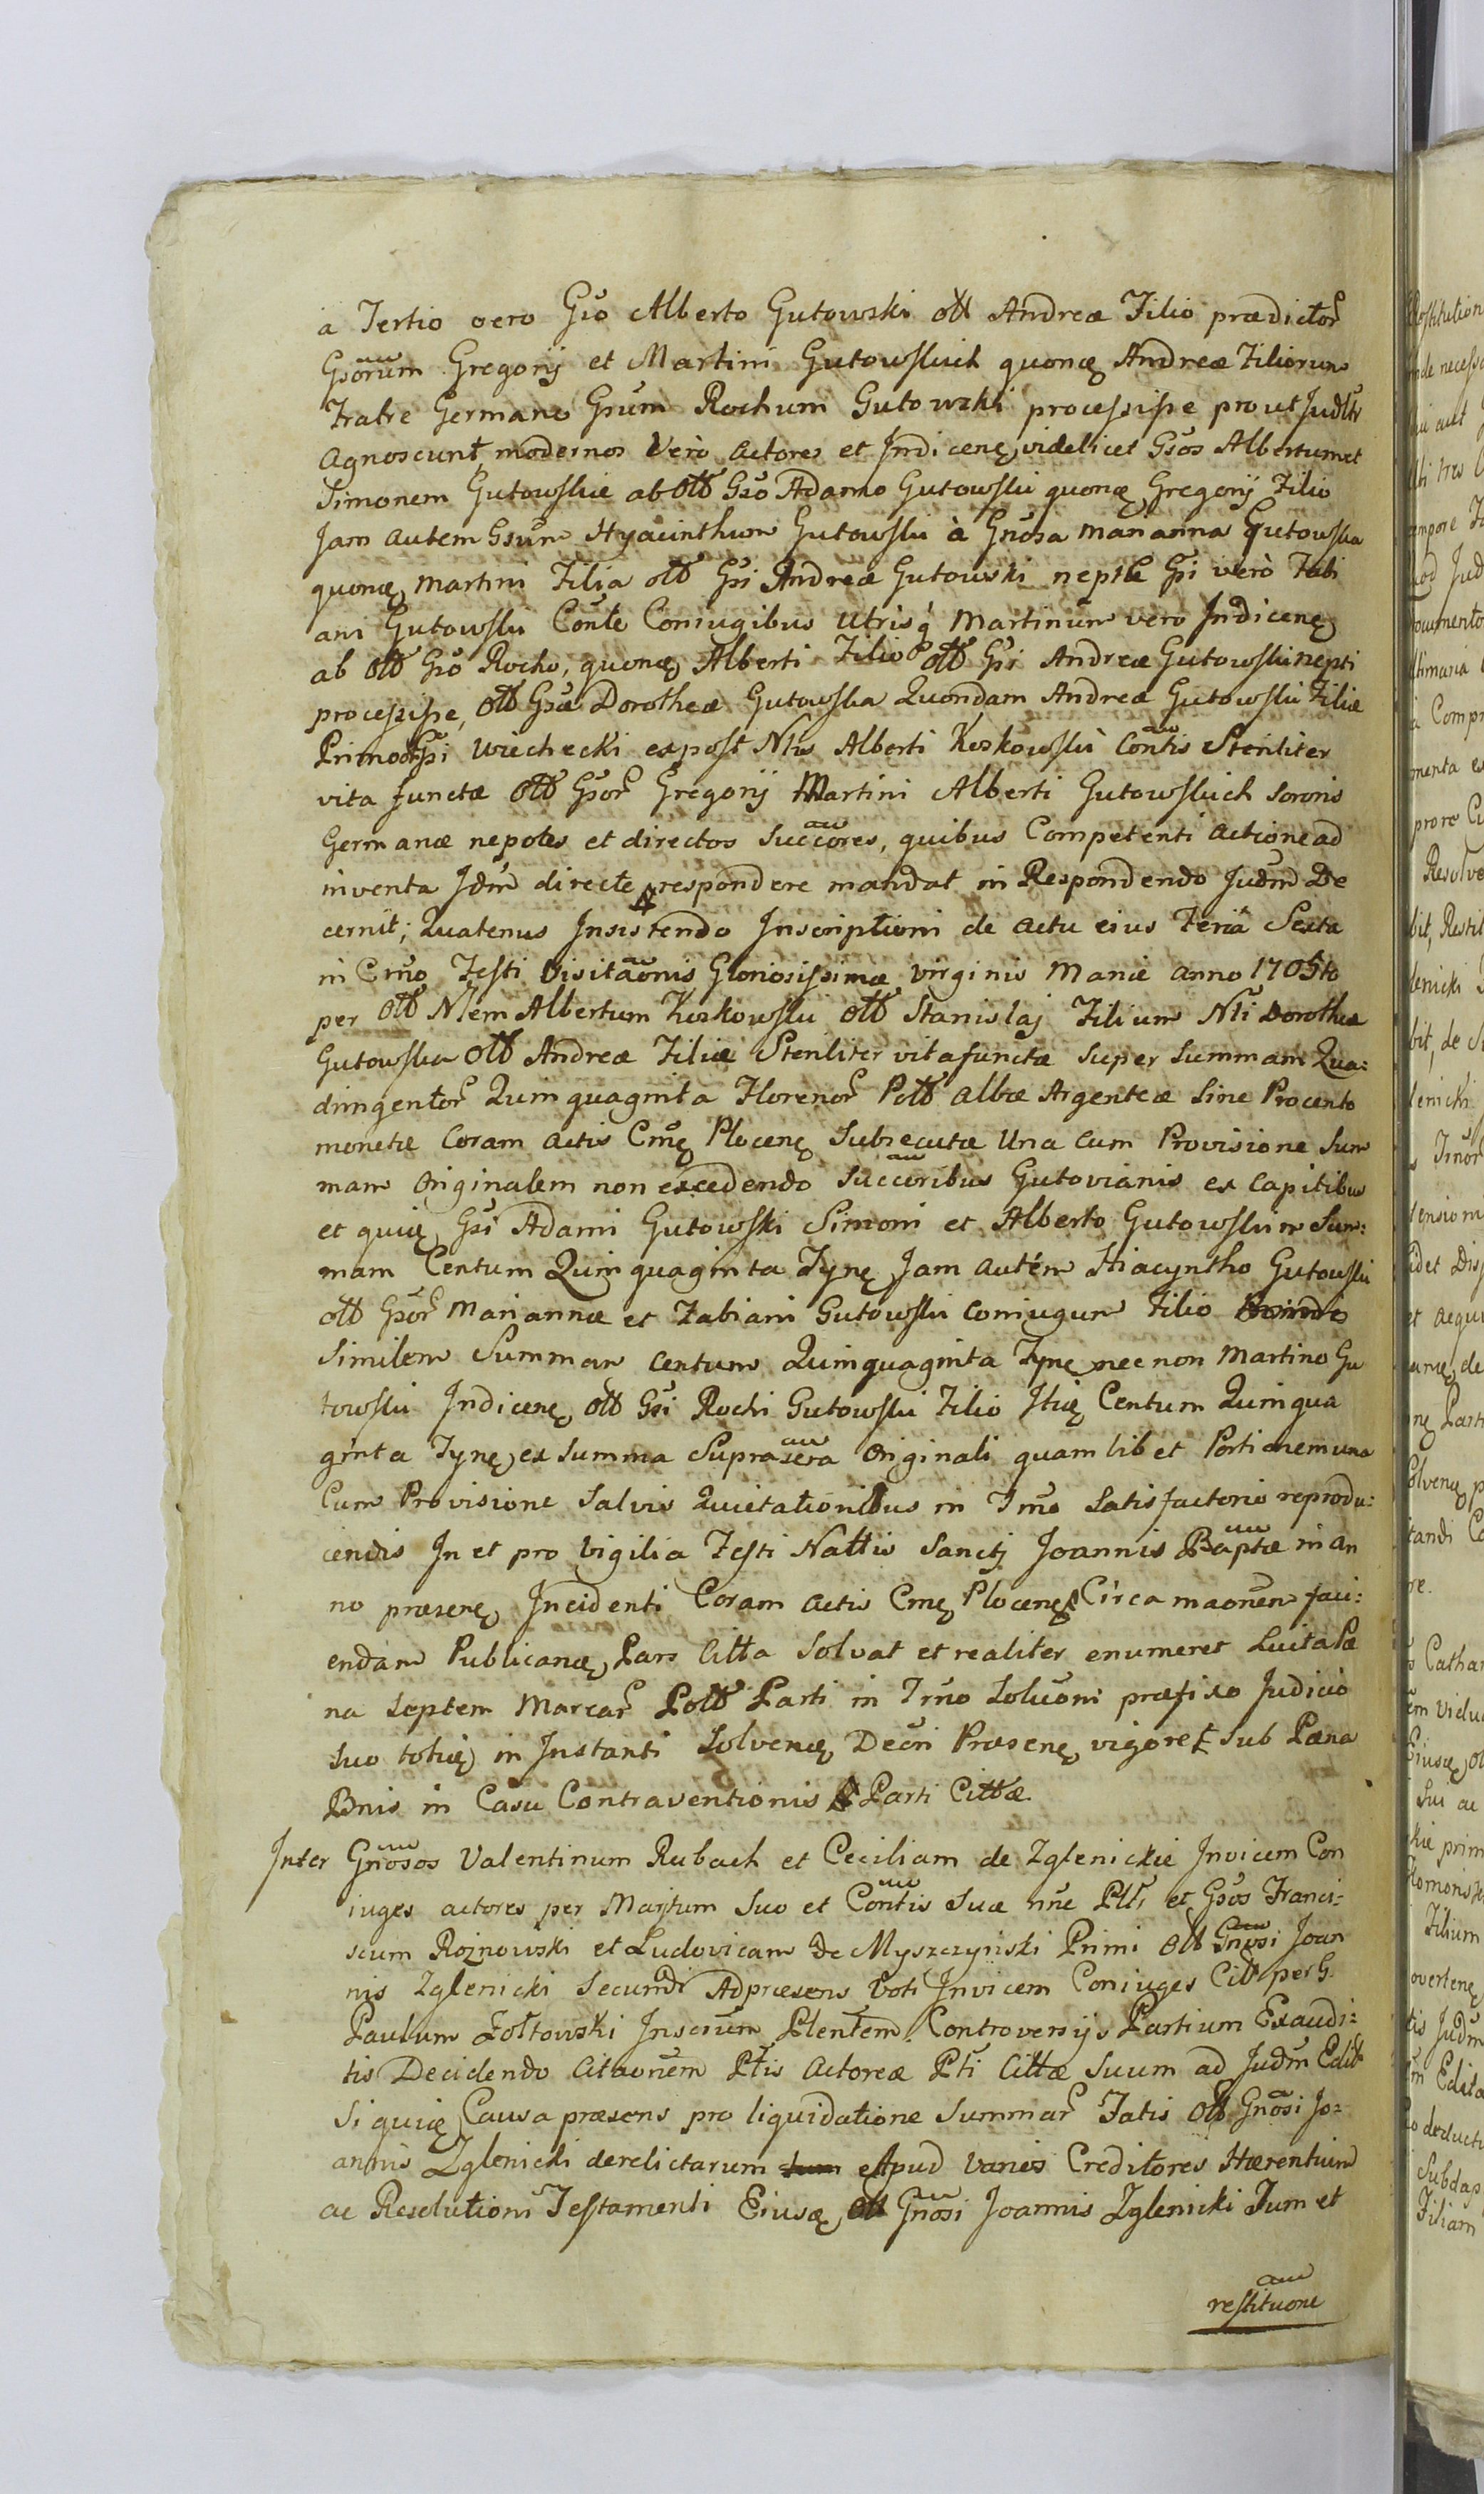 a Tertio vero Gso Alberto Gutowski olt Andreæ Filio prædictor
Gsorum Gregorij et Martini Gutowskich quonę Andreæ Filiorum
Fratre Germano Gsum Rochum Gutowski processisse prout Judtr
Agnoscunt modernos Verò Actores et Indicenę videlicet Gsos Albertum et
Simonem Gutowskie ab Olt Gso Adamo Gutowski quonę Gregorij Filio
Jam autem Gsum Hyacinthum Gutowski à Gnosa Marianna Gutowska
quonę Martini Filia olt Gsi Andreæ Gutowski nepte Gsi verò Fabi
ani Gutowski Conte Coniugibus utrisq Martinum vero Indicenę
ab olt Gso Rocho, quonę Alberti Filio olt Gsi Andreæ Gutowski nepti
processisse, Olt Gsæ Dorotheæ Gutowska Quondam Andreæ Gutowski Filiæ
Primo Gsi Wiechecki expost Nlis Alberti Koskowski Contis Steriliter
vita functæ Olt Gsor Gregorij Martini Alberti Gutowskich sororis
Germanæ nepotes et directos Succores, quibus Competenti actione ad
inventa Jdm directe respondere mandat in Respondendo Judm De
cernit; Quatenus Insistendo Inscriptioni de actu eius Feria Sexta
in Crno Festi Visitaonis Gloriosissimæ Virginis Mariæ anno 1705to
per Olt Nlem Albertum Koskowski olt Stanislaj Filium Nli Dorotheæ
Gutowska Olt Andreæ Filiæ Steriliter vita functæ Super Summam Qua:
dringentor Quinquaginta Florenor Polt albæ Argenteæ Sine Procento
monetæ Coram Actis Cmę Plocenę Subsecutæ Una Cum Provisione Sum
mam Originalem non excedendo Succoribus Gutovianis ex Capitibus
et quię Gsi Adami Gutowski Simoni et Alberto Gutowskim Sum:
mam Centum Quinquaginta Tynę Jam autem Hiacyntho Gutowski
olt Gsor Mariannæ et Fabiani Gutowski Coniugum Filio
Similem Summam Centum Quinquaginta Tynę nec non Martino Gu
towski Indicenę olt Gsi Rochi Gutowski Filio Itię Centum Quinqua
ginta Tynę ex Summa Suprascra Originali quamlibet Portionem una
Cum Provisione Salvis Quietationibus in Tmo Satisfactorio reprodu:
cendis In et pro Vigilia Festi Nattis Sanctj Joannis Baptæ in an
no præsenę Incidenti Coram Actis Cmę Plocenę Circa maonem faci:
endam Publicanę, Pars Citta Solvat et realiter enumeret Luita Pæ
na Septem Marcar Polt Parti in Trno Soluoni præfixo Judicio
Suo totię in Instanti Solvenę Decri Præsenę vigore et Sub Pæna
Bnis in Casu Contraventionis Parti Cittæ.
Inter Gnosos Valentinum Rubach et Ceciliam de Zglenickie Invicem Con
iuges actores per Maritum Suo et Contis Suæ nne Pltr et Gsos Franci:
scum Roznowski et Ludovicam De Myszczynski Primi Olt Gnosi Joan
nis Zglenicki Secundi Adpræsens Voti Invicem Coniuges Citt per G.
Paulum Zołtowski Inscrum Plentem. Controversijs Partium Exaudi:
tis Decidendo Citaonem Ptis Actoreæ Pti Cittæ Suum ad Judm Edit
Si quię Causa præsens pro liquidatione Summar Fatis Olt Gnosi Jo:
annis Zglenicki derelictarum Apud Varios Creditores Hærentium
ac Resolutioni Testamenti Eiusę Olt Gnosi Joannis Zglenicki Tum et
restituone